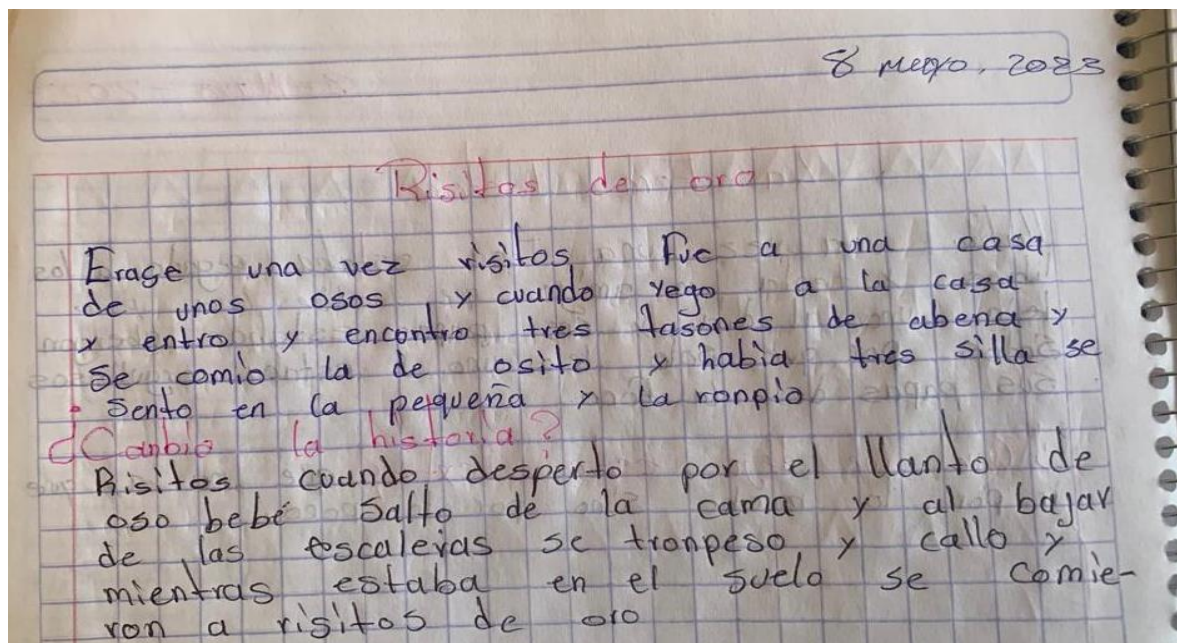 8 mayo, 2023
Risitos de oro
Erase una vez risitos Fue a una casa
de unos osos y cuando yego a la casa
y entro y encontro tres tasones de abena y
se comio la de osito y habia tres silla se
sento en la pequeña y la ronpio
¿Canbio la historia?
Risitos cuando desperto por el llanto de
oso bebé salto de la cama y al bajar
de las escaleras se tronpeso y callo y
mientras estaba en el suelo se comie-
ron a risitos de oro